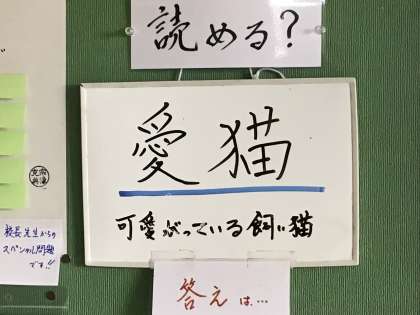 読める？
愛猫
可愛がっている飼い猫
答えは…
校長先生からの
スペシャル問題
です!!